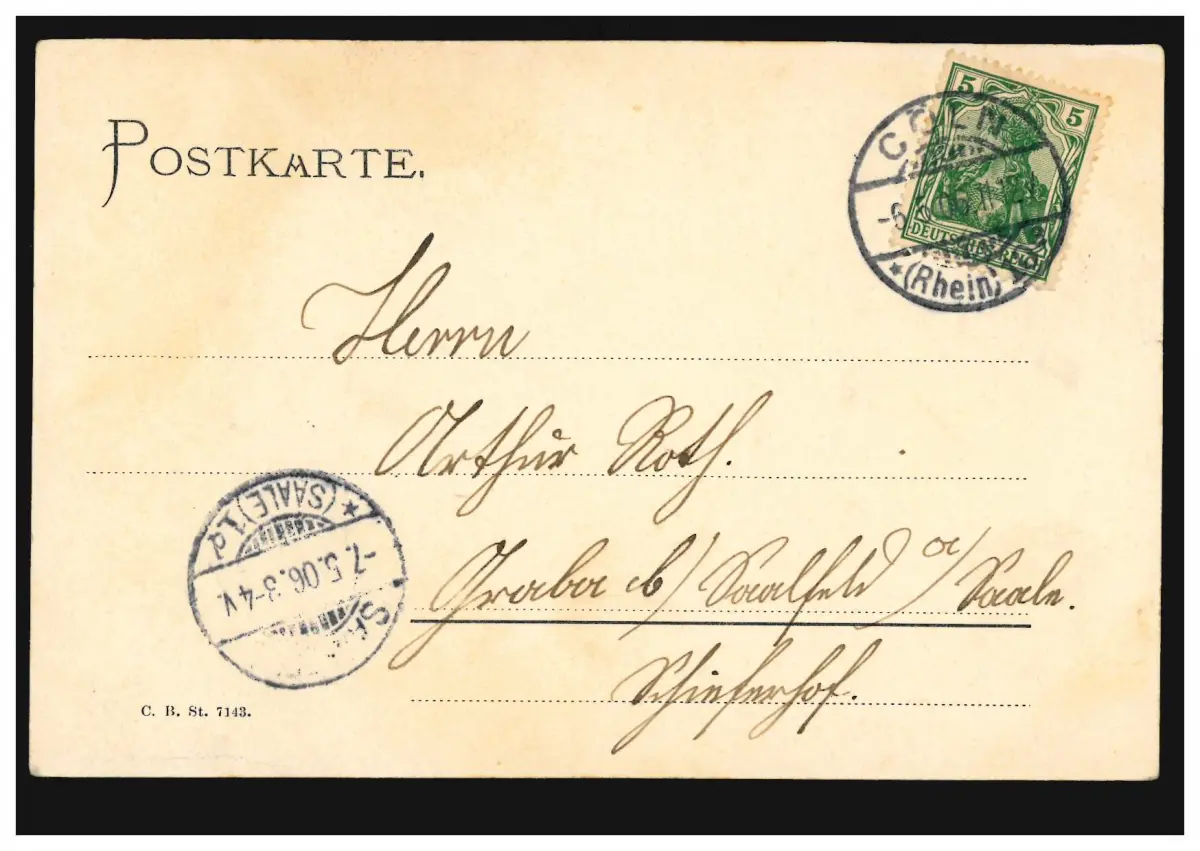 POSTKARTE.
5 5
DEUTSCHES REICH
CÖLN
-6.5.06
*(Rhein)
Herrn
Arthur Roth.
Graba b/ Saalfeld a/ Saale.
Schieferhof.
*(SAALE)1d
-7.5.06.3-4V.
C. B. St. 7143.